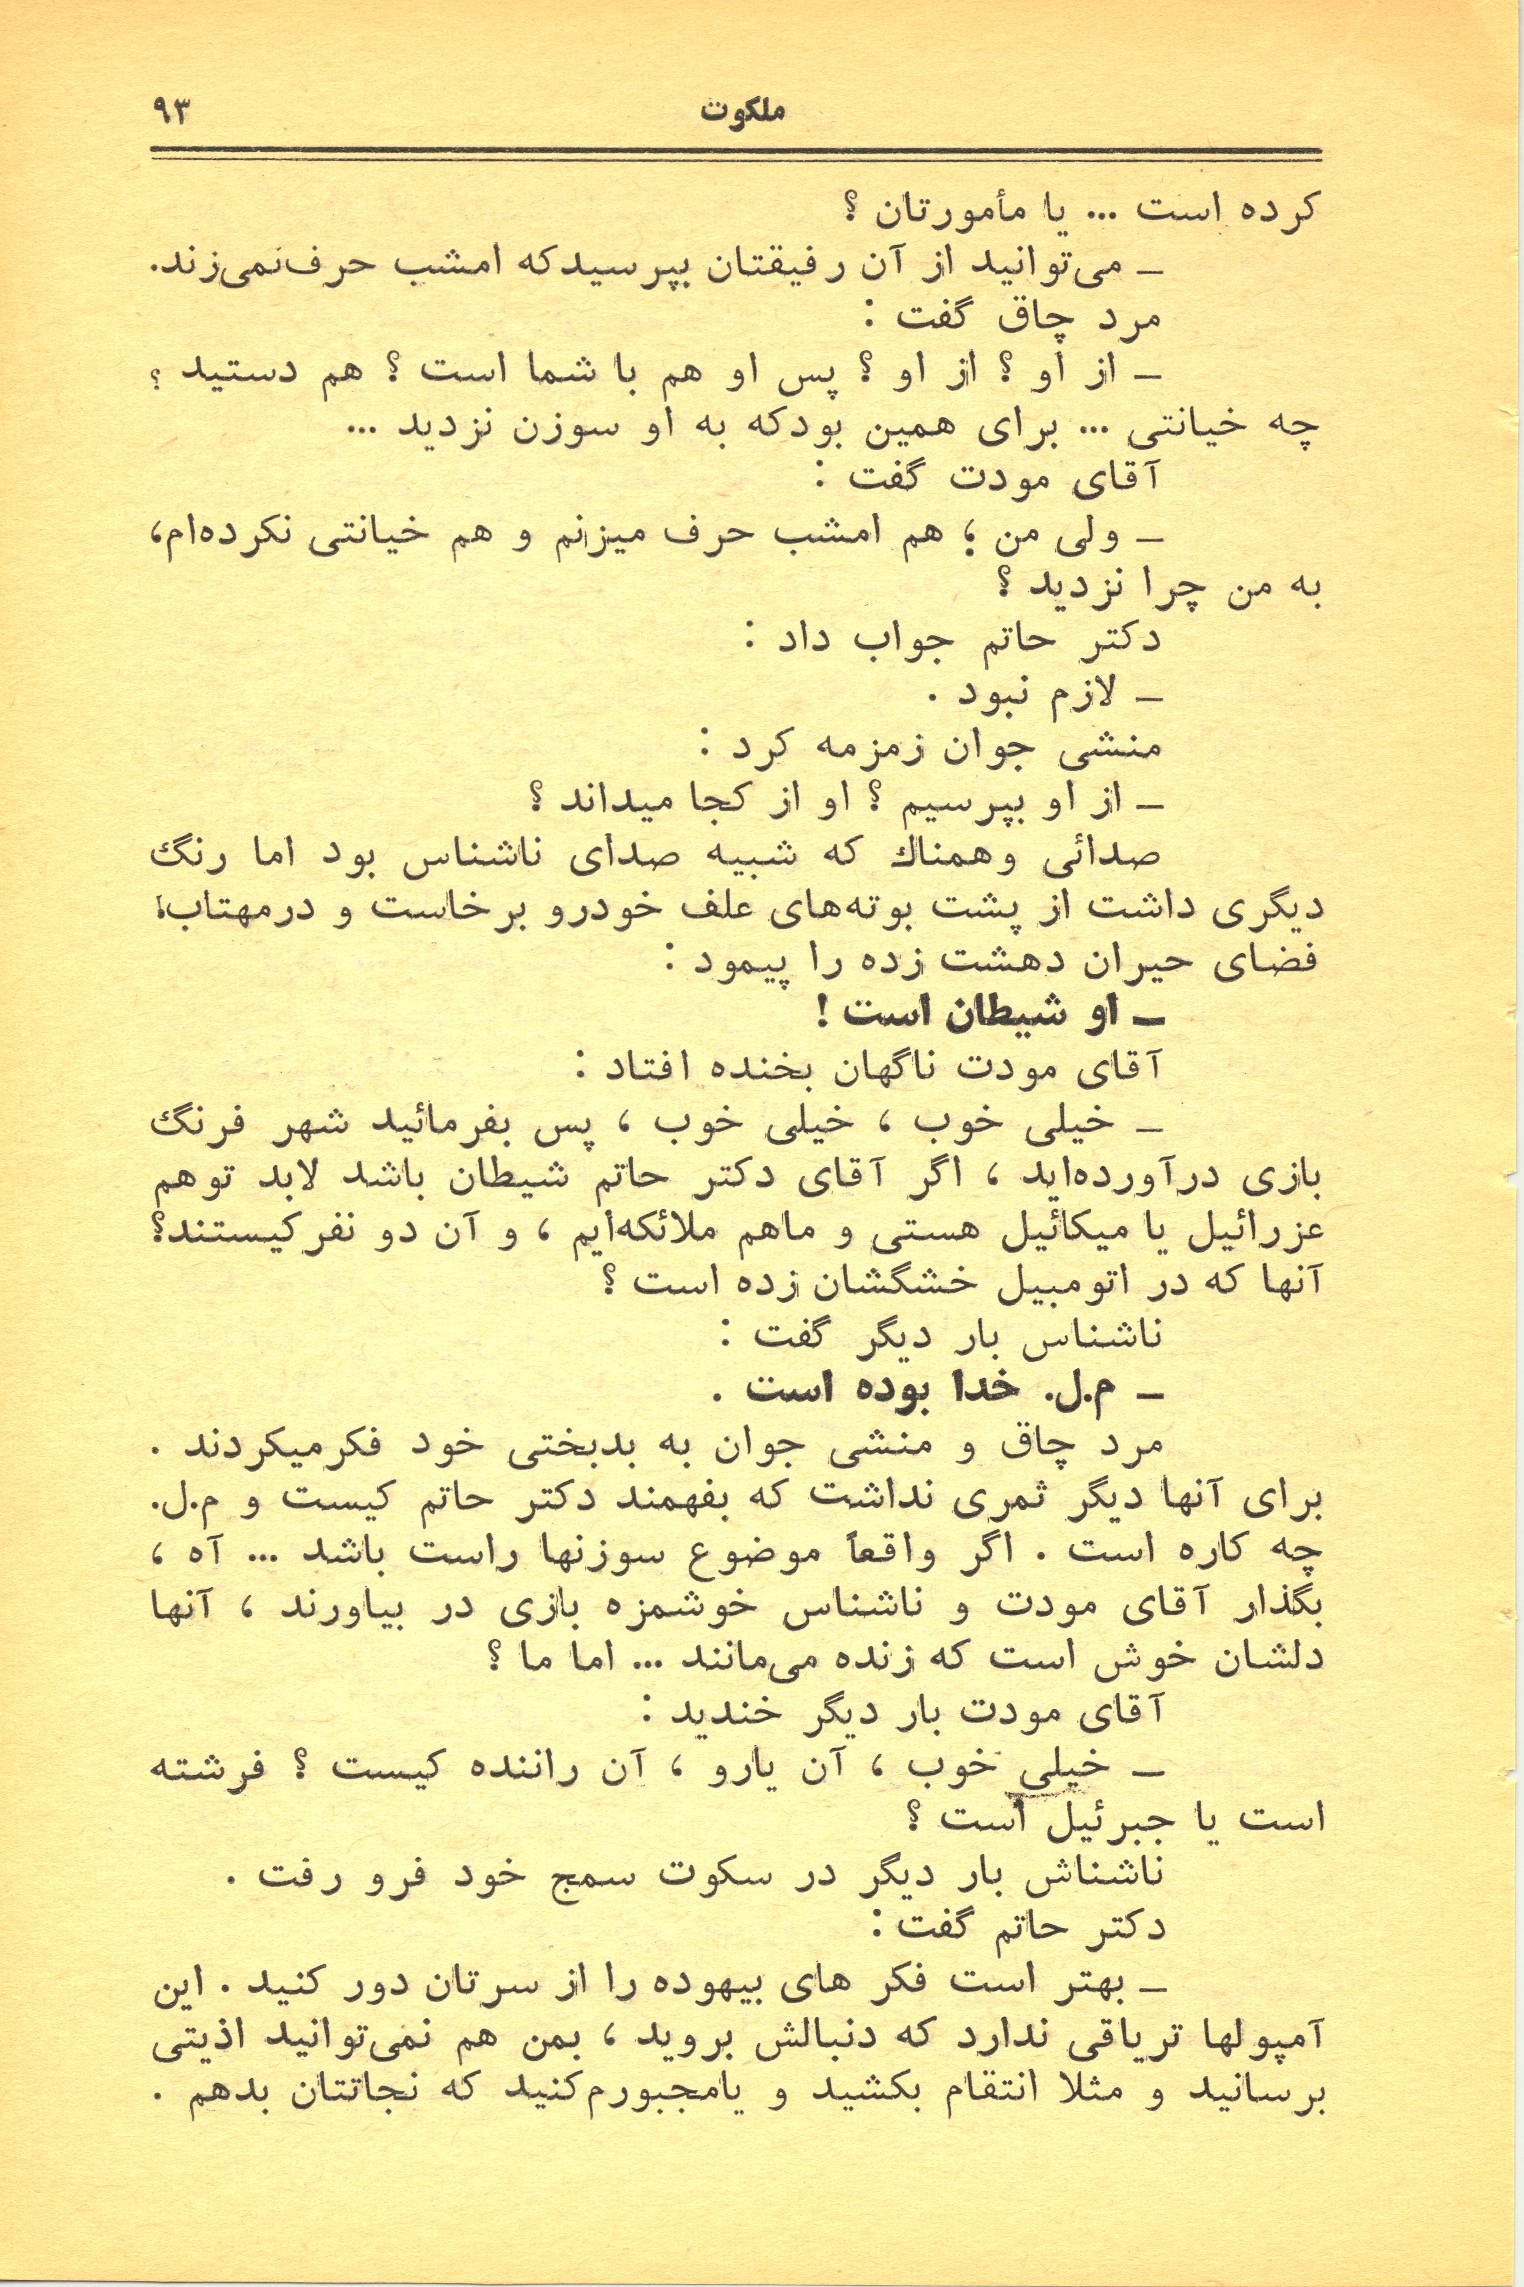 ملکوت ۹۳
کرده است ... یا مأمورتان ؟
ـ می‌توانید از آن رفیقتان بپرسیدکه امشب حرف‌نمی‌زند.
مرد چاق گفت :
ـ از او ؟ از او ؟ پس او هم با شما است ؟ هم دستید ؟
چه خیانتی ... برای همین بودکه به او سوزن نزدید ...
آقای مودت گفت :
ـ ولی من ؛ هم امشب حرف میزنم و هم خیانتی نکرده‌ام،
به من چرا نزدید ؟
دکتر حاتم جواب داد :
ـ لازم نبود .
منشی جوان زمزمه کرد :
ـ از او بپرسیم ؟ او از کجا میداند ؟
صدائی وهمناك که شبیه صدای ناشناس بود اما رنگ
دیگری داشت از پشت بوته‌های علف خودرو برخاست و درمهتاب،
فضای حیران دهشت زده را پیمود :
ـ او شیطان است !
آقای مودت ناگهان بخنده افتاد :
ـ خیلی خوب ، خیلی خوب ، پس بفرمائید شهر فرنگ
بازی درآورده‌اید ، اگر آقای دکتر حاتم شیطان باشد لابد توهم
عزرائیل یا میکائیل هستی و ماهم ملائکه‌ایم ، و آن دو نفرکیستند؟
آنها که در اتومبیل خشگشان زده است ؟
ناشناس بار دیگر گفت :
ـ م.ل. خدا بوده است .
مرد چاق و منشی جوان به بدبختی خود فکرمیکردند .
برای آنها دیگر ثمری نداشت که بفهمند دکتر حاتم کیست و م.ل.
چه کاره است . اگر واقعاً موضوع سوزنها راست باشد ... آه ،
بگذار آقای مودت و ناشناس خوشمزه بازی در بیاورند ، آنها
دلشان خوش است که زنده می‌مانند ... اما ما ؟
آقای مودت بار دیگر خندید :
ـ خیلی خوب ، آن یارو ، آن راننده کیست ؟ فرشته
است یا جبرئیل است ؟
ناشناش بار دیگر در سکوت سمج خود فرو رفت .
دکتر حاتم گفت :
ـ بهتر است فکر های بیهوده را از سرتان دور کنید . این
آمپولها تریاقی ندارد که دنبالش بروید ، بمن هم نمی‌توانید اذیتی
برسانید و مثلا انتقام بکشید و یامجبورم‌کنید که نجاتتان بدهم .